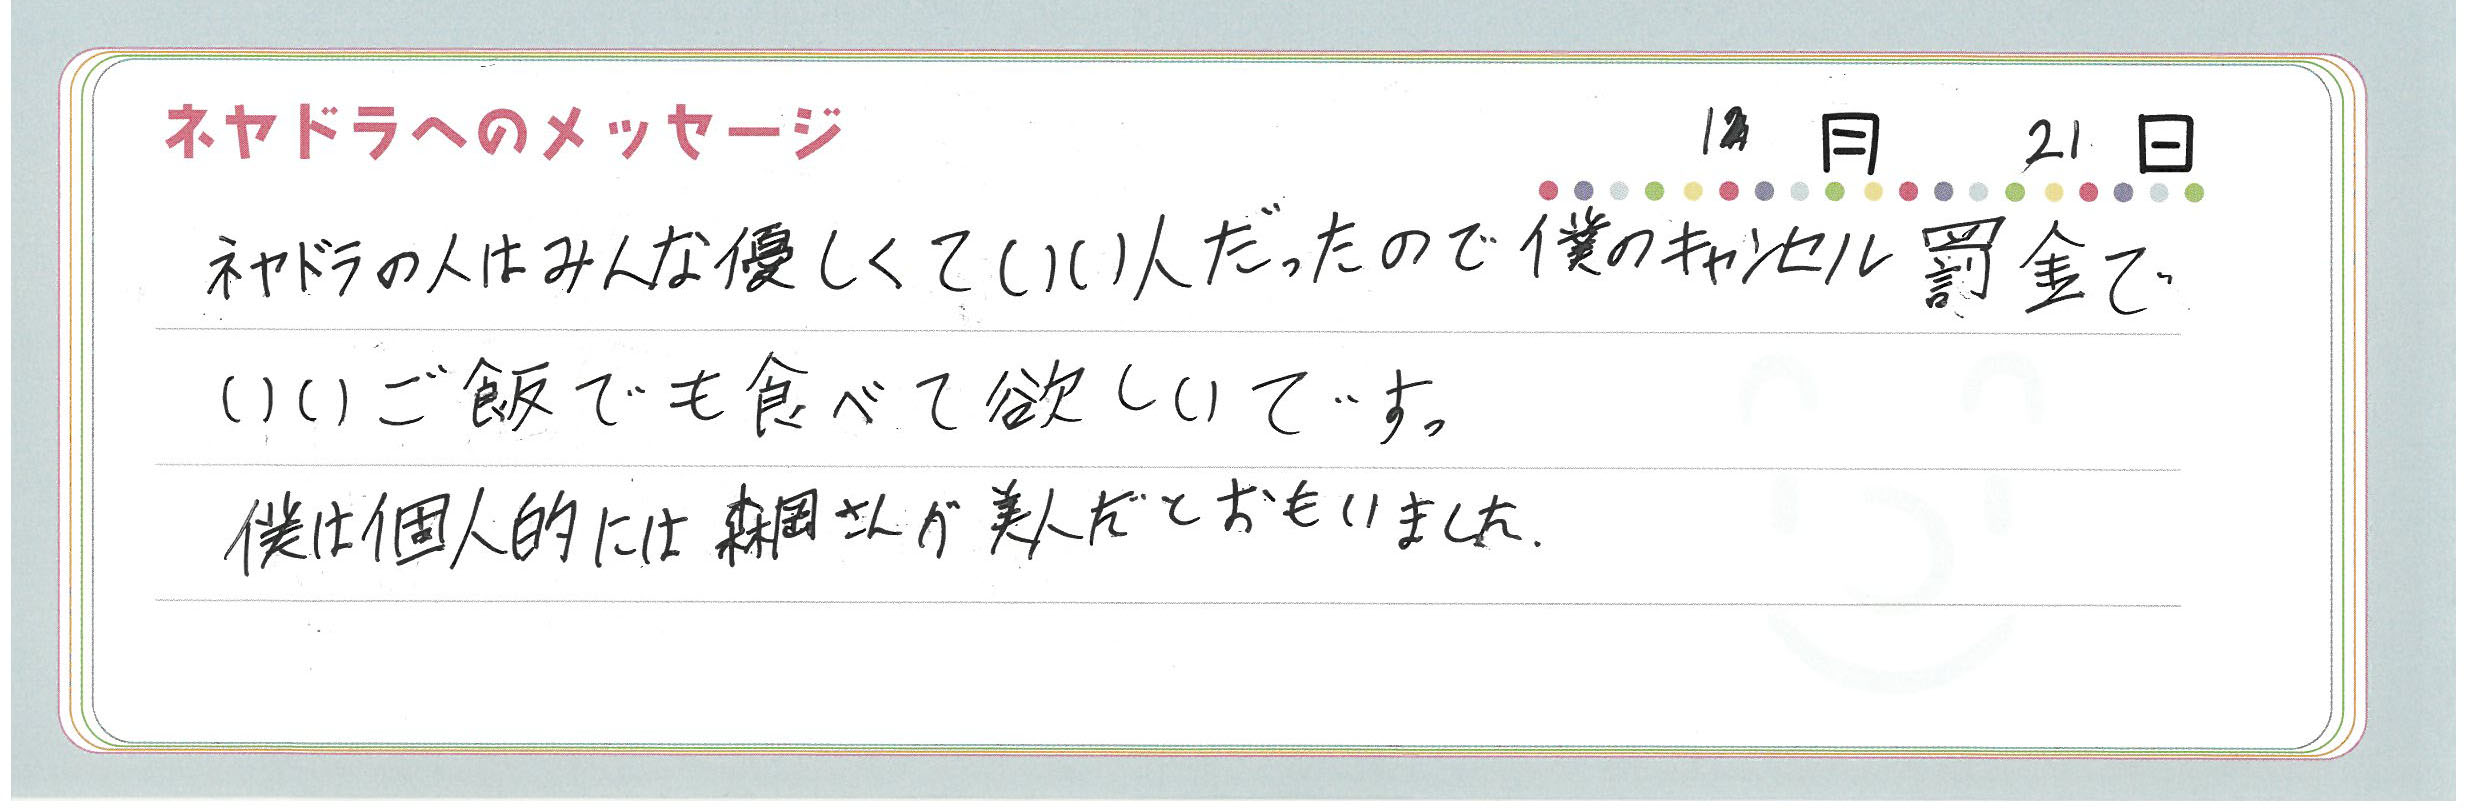 ネヤドラへのメッセージ
12月 21日
ネヤドラの人はみんな優しくていい人だったので僕のキャンセル罰金で
いいご飯でも食べて欲しいです。
僕は個人的には森岡さんが美人だとおもいました.